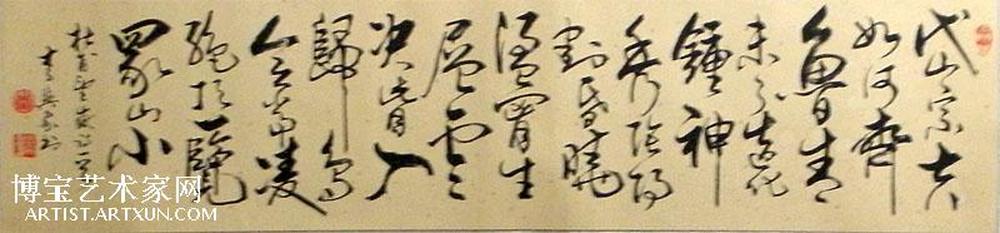 岱宗夫
如何齊
魯青
未了造化
鍾神
秀陰陽
割昏曉
盪胸生
層雲
決眥入
歸鳥
會當凌
絕頂一覽
眾山小
杜甫望嶽詩
博宝艺术家网
ARTIST.ARTXUN.COM